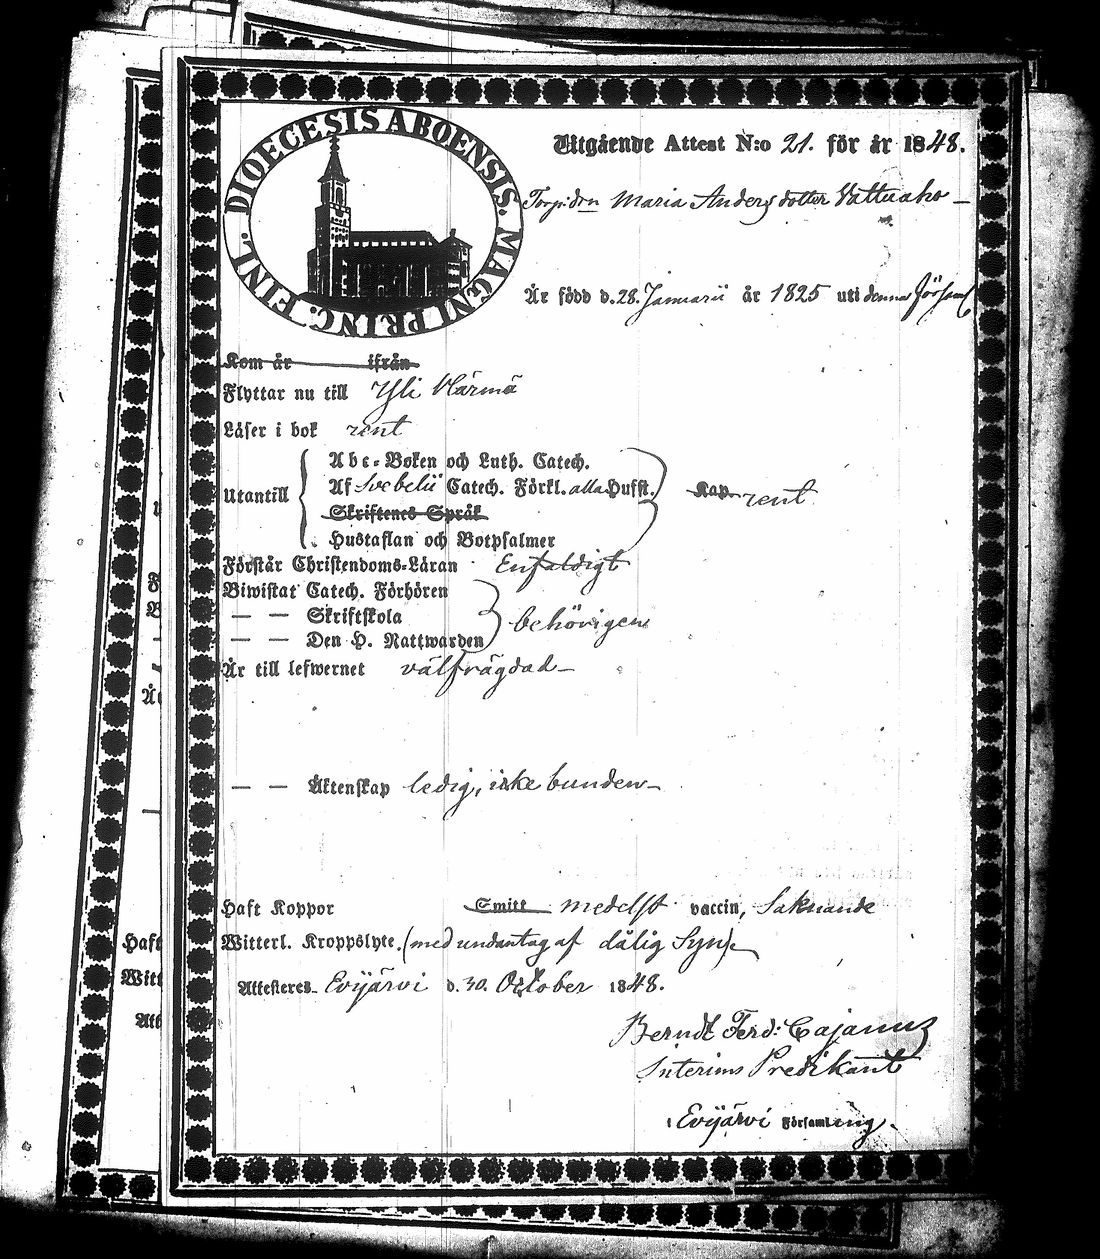 DIOECESIS ABOENSIS. MAGNI PRINC. FINL.
Utgående Attest N:o 21. för år 1848.
Torp.dru Maria Andersdotter Vattuaho
Är född d. 28. Januarii år 1825 uti denna Församl
Kom år ifrån
Flyttar nu till Yli Härmä
Läser i bok rent
Utantill
Abc-Boken och Luth. Catech.
Af Svebelii Catech. Förkl. alla Hufst.
Skriftenes Språk
Hustaflan och Botpsalmer
Kap. rent
Förstår Christendoms-Läran Enfaldigt
Biwistat Catech. Förhören
— — Skriftskola
— — Den H. Nattwarden
behörigen
Är till lefwernet välfrägdad —
— — Äktenskap ledig, icke bunden —
Haft Koppor Smitt medelst vaccin, Saknande
Witterl. Kroppslyte. (med undantag af dålig Syn).
Attesteres Evijärvi d. 30. October 1848.
Berndt Ferd: Cajanus
Interims Predikant
i Evijärvi Församling.
Haft
Witt
Att